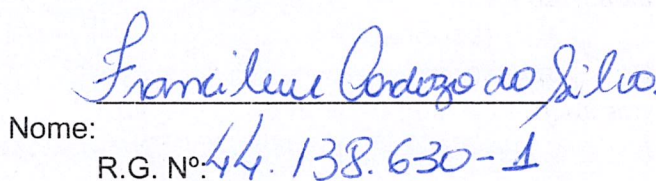 Francilene Cardozo da Silva
Nome:
R.G. Nº: 44.138.630-1